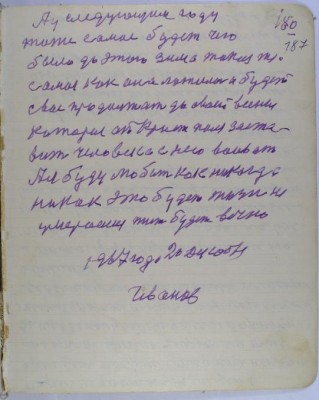 180
187
А у следующим году
тоже самое будет что
было до этого зима такая же
самая как она ложилась и будет
свое продолжать до своей весны
которая откроет поля заста-
вит человека с нею воевать
А я буду любить как никогда
никак это будет жизнь не
умераемая тело будет вечно
1967 года 20 декабря
Иванов